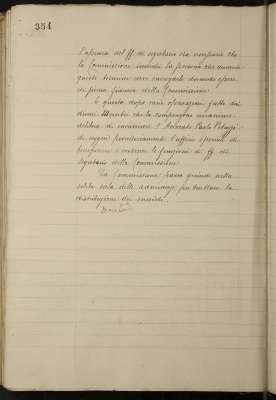 354
l'assenza del ff di segretario sia necessario che
la Commissione nomini la persona che durante
questo termine deve surrogarlo dovendo essere
di piena fiducia della Commissione.
E questa dopo varie osservazioni fatte dai
diversi Membri che la compongono unanime
delibera di incaricare l'Avvocato Paolo
di reggere provvisoriamente l'ufficio speciale di
beneficenza e sostenere le funzioni di ff. di
Segretario della Commissione.
La Commissione passa quindi nella
solita sala delle adunanze per trattare la
distribuzione dei sussidi.